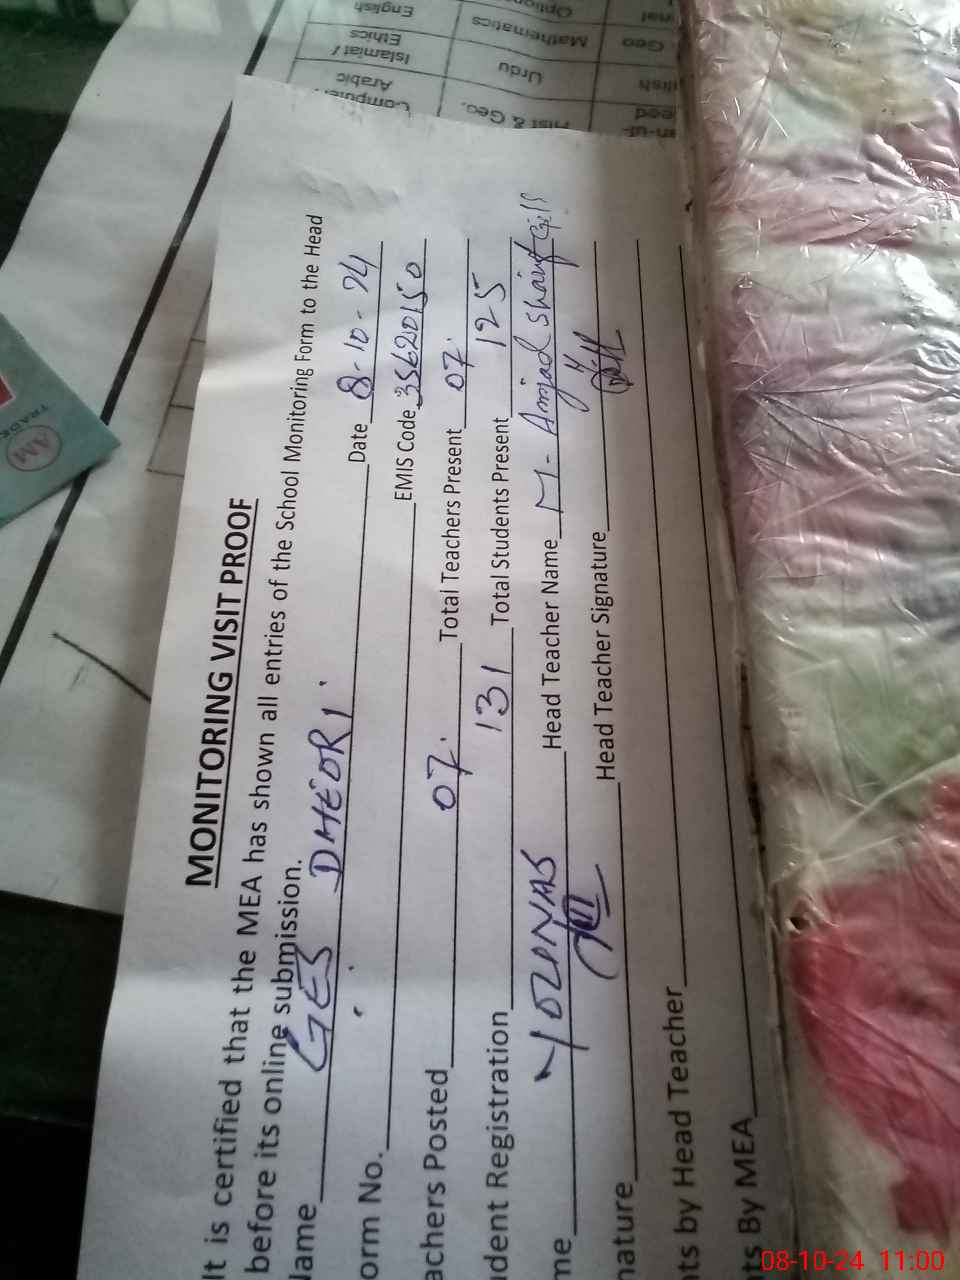 MONITORING VISIT PROOF
It is certified that the MEA has shown all entries of the School Monitoring Form to the Head
before its online submission.
Name GES DHEORI Date 8-10-24
orm No. EMIS Code 35620150
achers Posted 07 Total Teachers Present 07
dent Registration 131 Total Students Present 125
me YOUNAS Head Teacher Name M-Amjad Sharif
nature Head Teacher Signature
nts by Head Teacher
nts By MEA
Computer Hist & Geo.
Arabic
Islamiat / Urdu
Ethics
Mathematics Geo
English
TRADE
AM
08-10-24 11:00